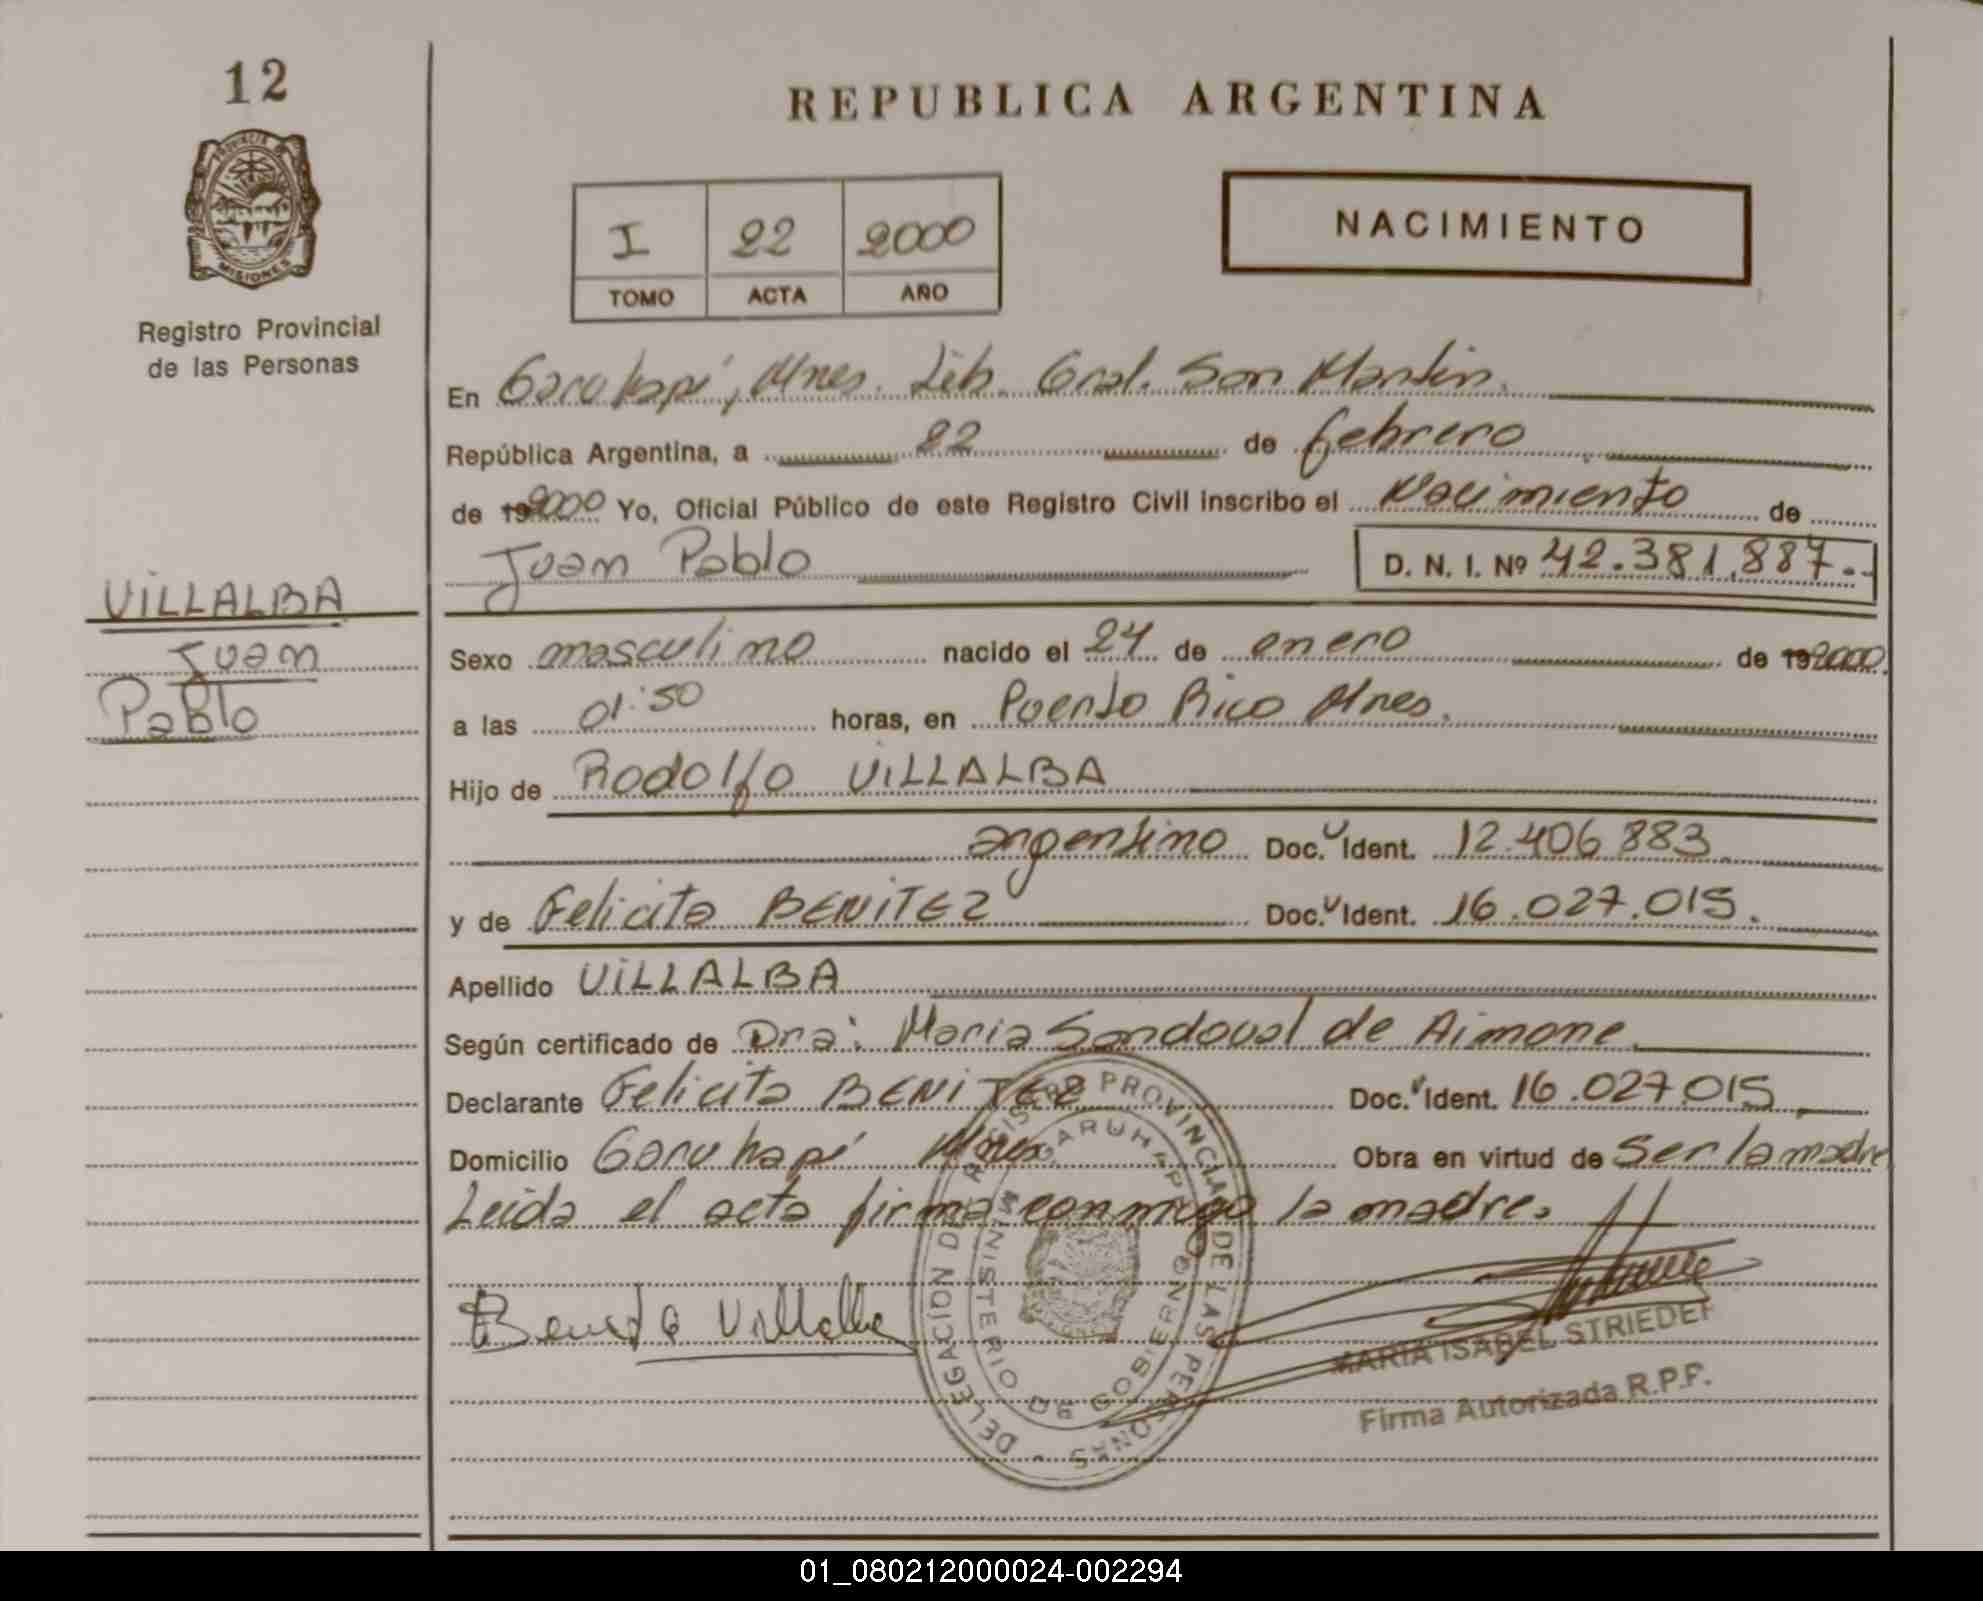 12
REPUBLICA ARGENTINA
PROVINCIA DE
MISIONES
Registro Provincial
de las Personas
I 22 2000
TOMO ACTA AÑO
NACIMIENTO
En Garuhapí, Mnes. Lib. Gral. San Martín.
República Argentina, a 22 de febrero
de 192000 Yo, Oficial Público de este Registro Civil inscribo el Nacimiento de
Juan Pablo D. N. I. Nº 42.381.887.-
VILLALBA
Juan
Pablo
Sexo masculino nacido el 24 de enero de 192000
a las 01:50 horas, en Puerto Rico Mnes.
Hijo de Rodolfo VILLALBA
argentino Doc. Ident. 12.406.883
y de Felicita BENITEZ Doc. Ident. 16.027.015.
Apellido VILLALBA
Según certificado de Dra: Maria Sandoval de Aimone
Declarante Felicita BENITEZ Doc. Ident. 16.027.015
Domicilio Garuhapí Mnes. Obra en virtud de Ser la madre
Leida el acta firma conmigo la madre.
Villalba
DELEGACION DEL REGISTRO PROVINCIAL DE LAS PERSONAS
GARUHAPI
MINISTERIO DE GOBIERNO
MARIA ISABEL STRIEDER
Firma Autorizada R.P.P.
01_080212000024-002294